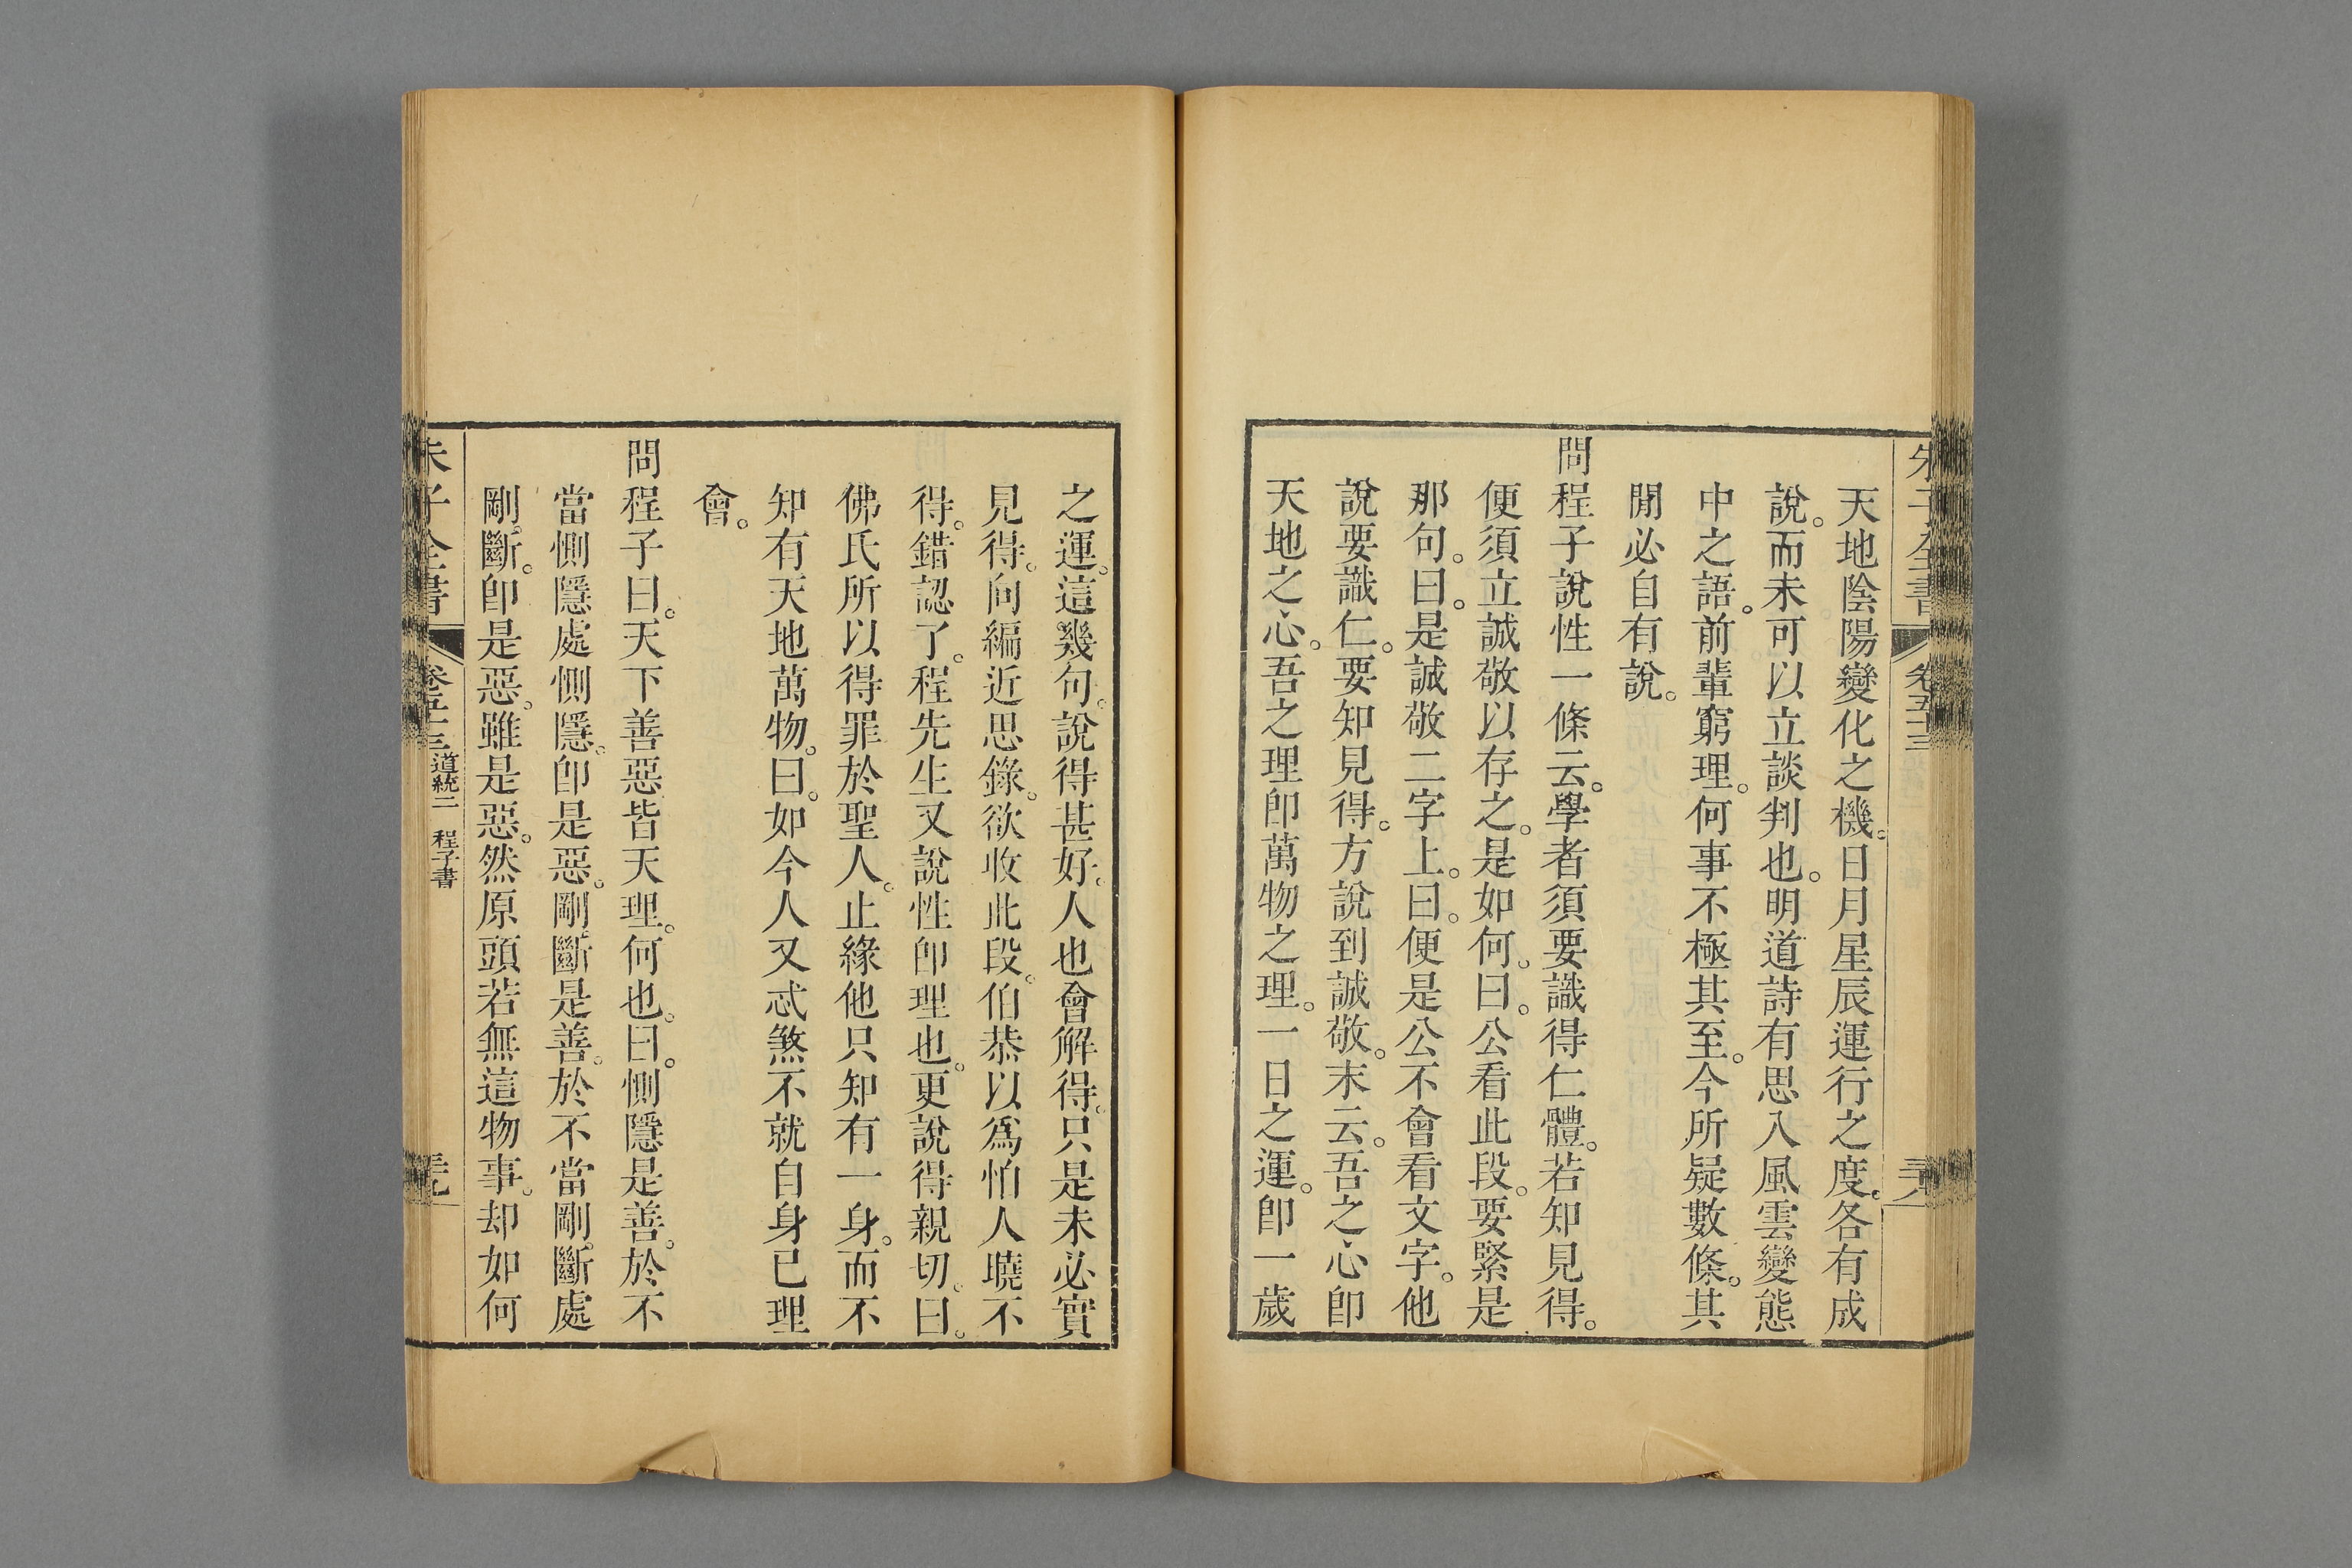 天地陰陽變化之機。日月星辰運行之度。各有成
說。而未可以立談判也。明道詩有思入風雲變態
中之語。前輩窮理。何事不極其至。今所疑數條。其
閒必自有說。
問程子說性一條云。學者須要識得仁體。若知見得。
便須立誠敬以存之。是如何。曰。公看此段。要緊是
那句。曰。是誠敬二字上。曰。便是公不會看文字。他
說要識仁。要知見得。方說到誠敬。末云。吾之心卽
天地之心。吾之理卽萬物之理。一日之運。卽一歲
之運。這幾句。說得甚好。人也會解得。只是未必實
見得。向編近思錄。欲收此段。伯恭以爲怕人曉不
得。錯認了。程先生又說性卽理也。更說得親切。曰。
佛氏所以得罪於聖人。止緣他只知有一身。而不
知有天地萬物。曰。如今人又忒煞不就自身已理
會。
問程子曰。天下善惡皆天理。何也。曰。惻隱是善。於不
當惻隱處惻隱。卽是惡。剛斷是善。於不當剛斷處
剛斷。卽是惡。雖是惡。然原頭若無這物事。却如何
朱子全書
卷五十三
道統二 程子書